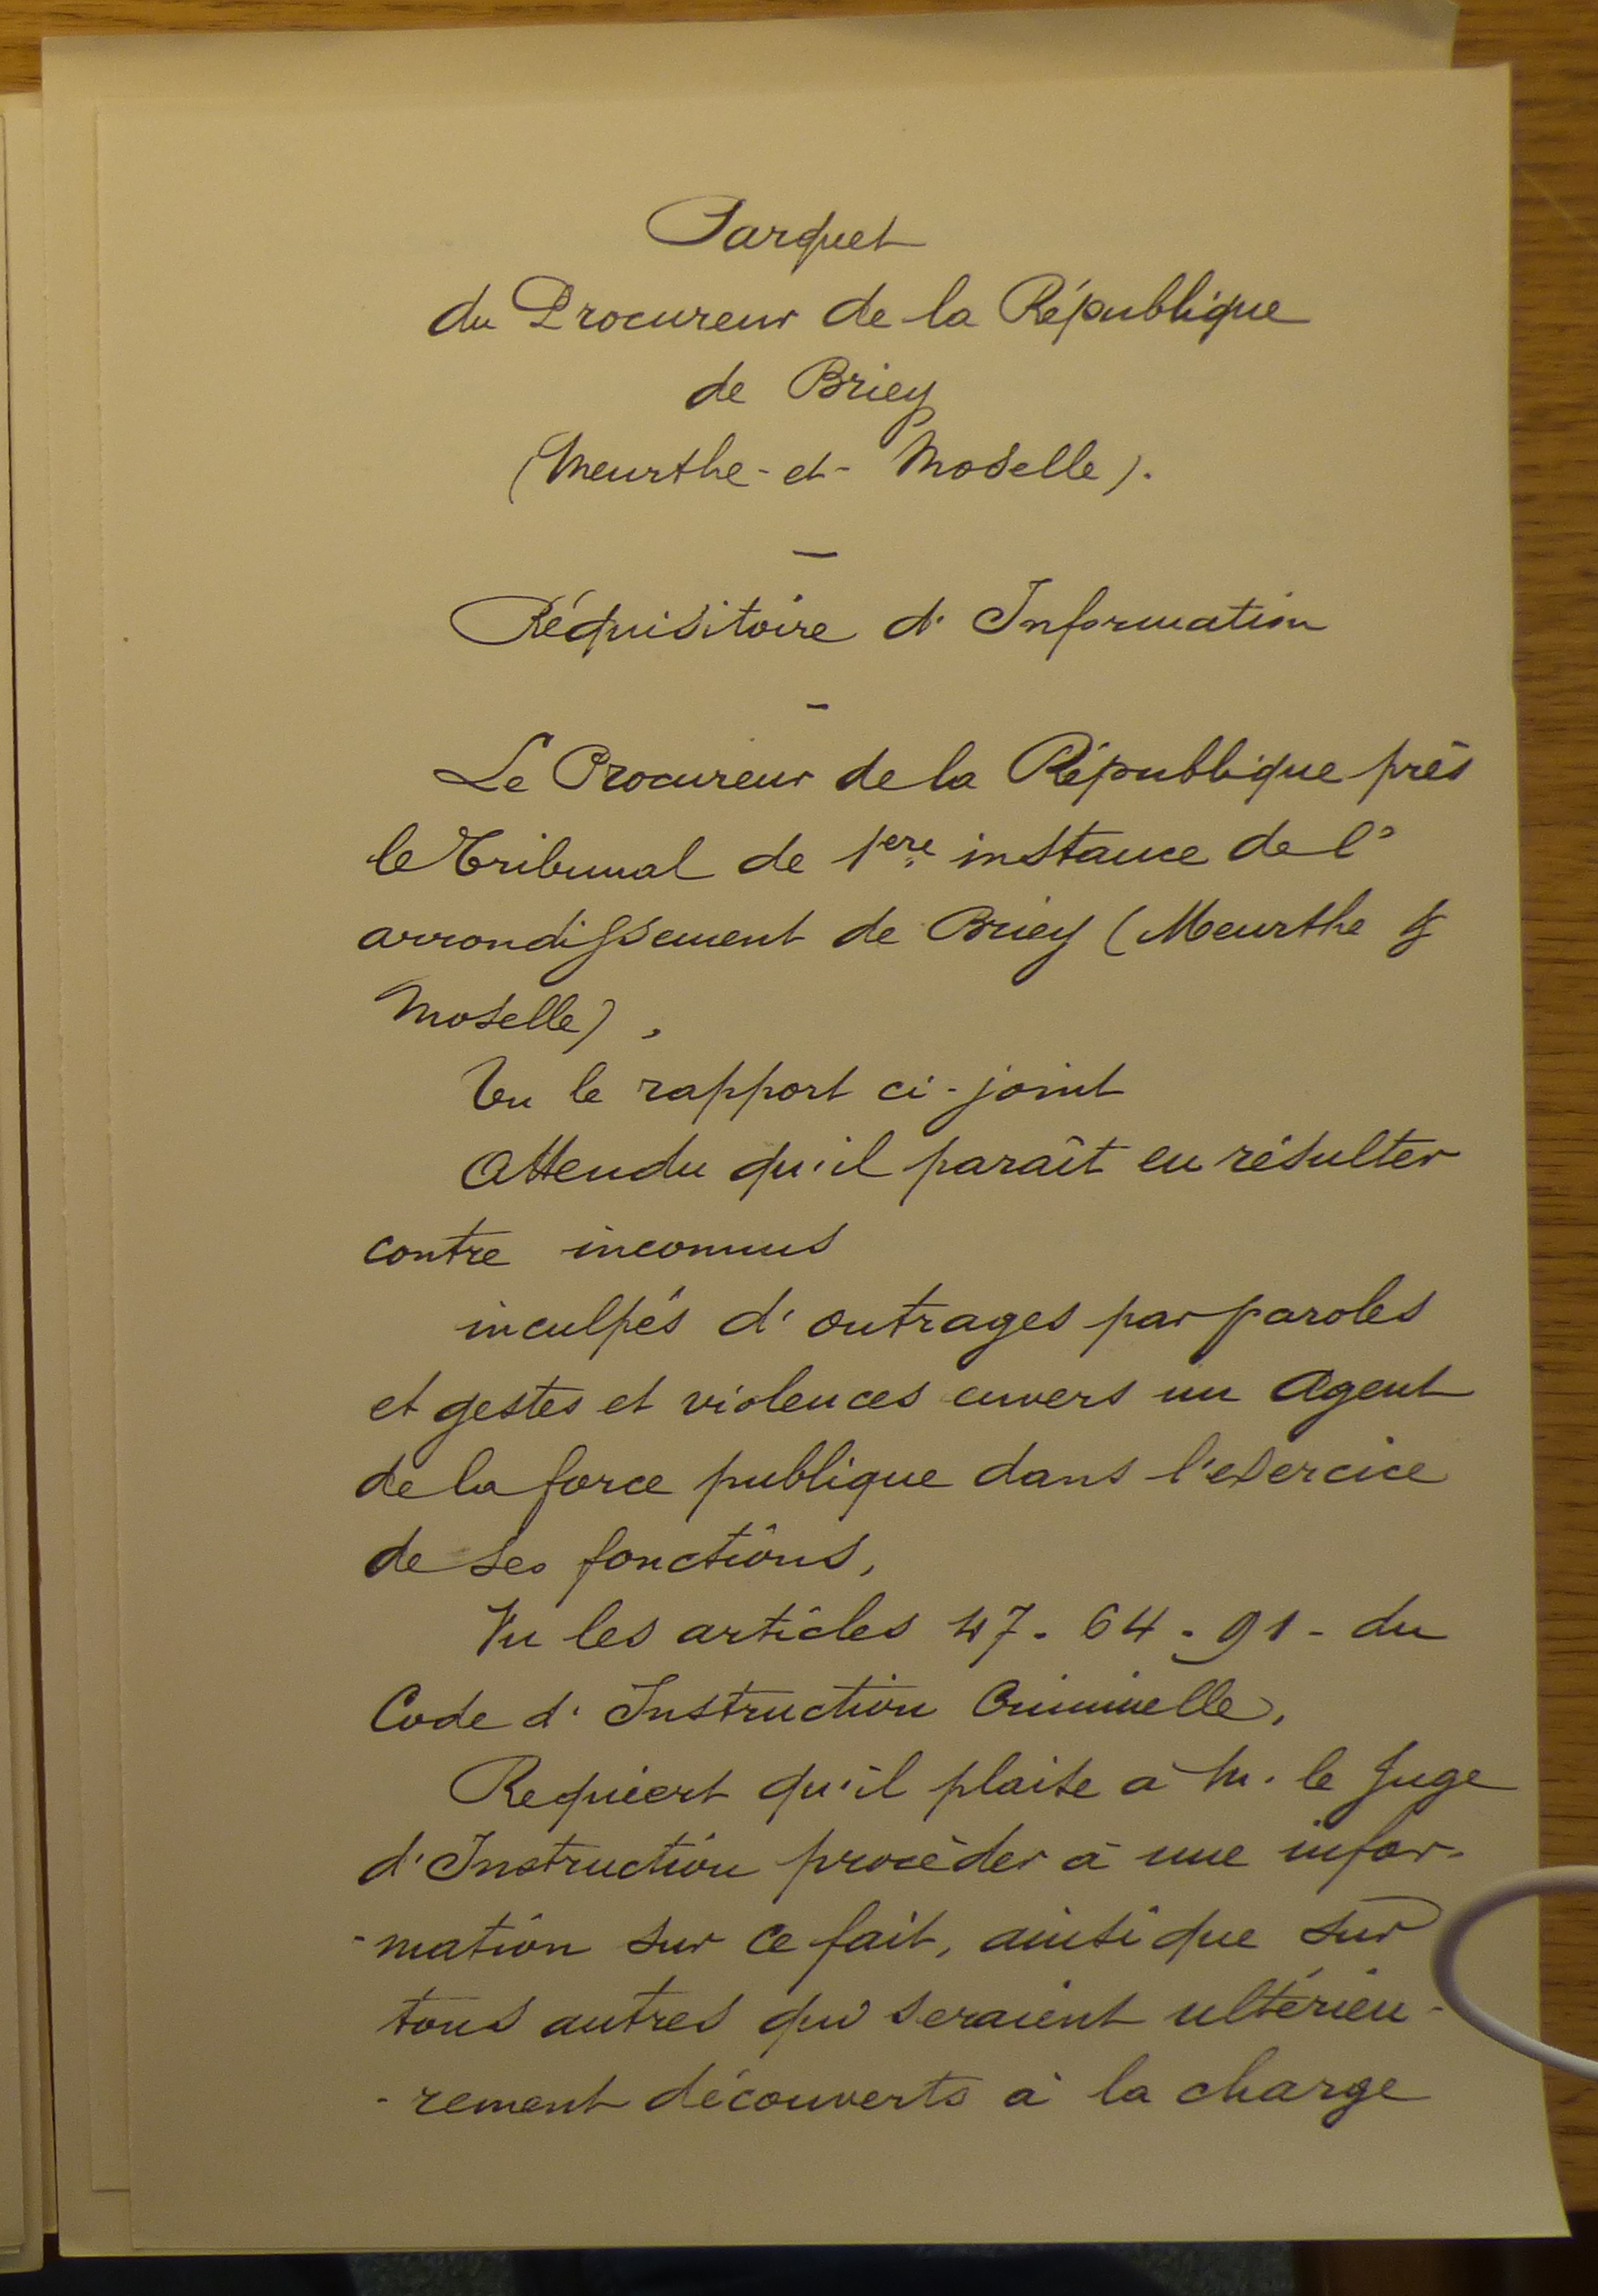 Parquet
du Procureur de la République
de Briey
(Meurthe-et-Moselle).
Réquisitoire d'Information
Le Procureur de la République près
le Tribunal de 1ere instance de l'
arrondissement de Briey (Meurthe &
Moselle),
Vu le rapport ci-joint
Attendu qu'il paraît en résulter
contre inconnus
inculpés d'outrages par paroles
et gestes et violences envers un Agent
de la force publique dans l'exercice
de ses fonctions,
Vu les articles 47. 64. 91 - du
Code d'Instruction Criminelle,
Requiert qu'il plaise à M. le Juge
d'Instruction procèder à une infor-
-mation sur ce fait, ainsi que sur
tous autres qui seraient ultérieu-
-rement découverts à la charge